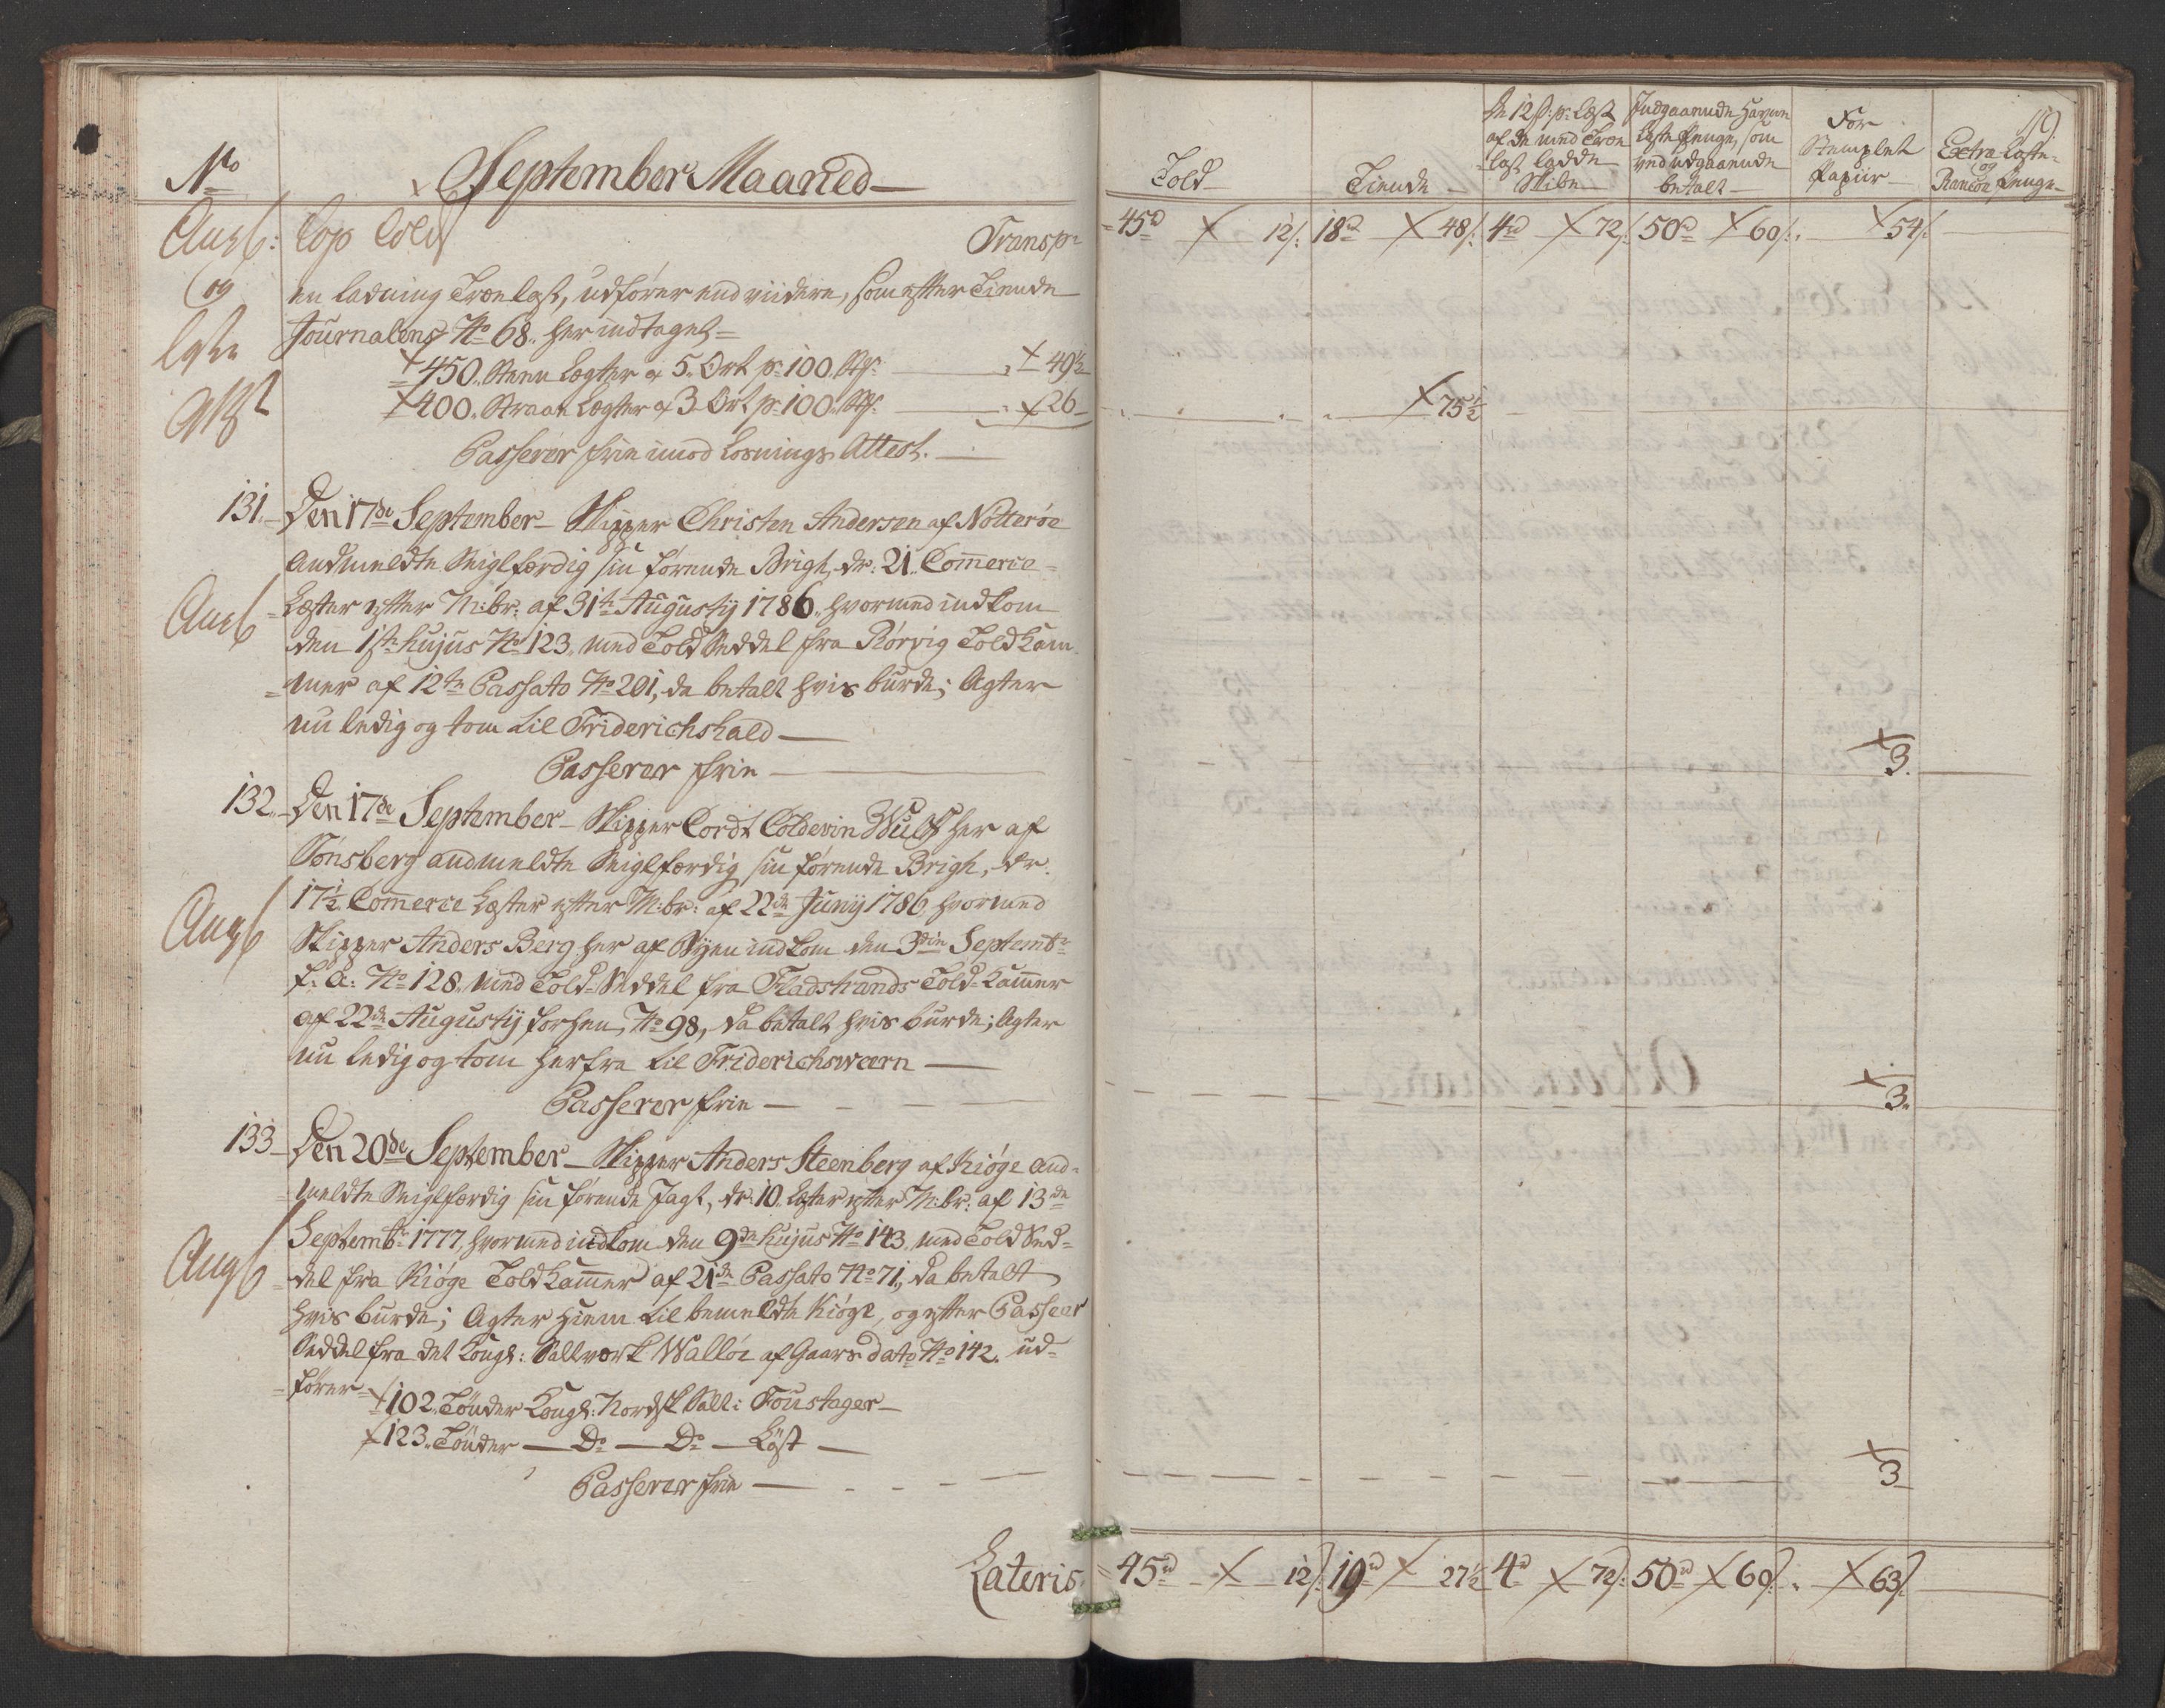 No
September Maaned
Transpt
en ladning Trælast, udfører end viidere, som efter Tiende
Journalens No 68. her indtaget
450. Steen Lægter a 5. Ort pr 100. Stk: 49½
400. Straae Lægter a 3 Ort pr 100. Stk: 26
Passerer frie imod Losnings Attest.
131. Den 17de September Skipper Christen Andersen af Nötteröe
andmeldte Seiglfærdig sin førende Brigt, dr: 21. Commerce
Læster efter M:br: af 31te Augusty 1786. hvormed indkom
den 1ste hujus No 123. med Told Seddel fra Rörvig Told Kam
mer af 12te Passato No 201, da betalt hvis burde; Agter
nu ledig og tom til Friderichshald
Passerer frie
132. Den 17de September Skipper Cordt Coldevin Wulf her af
Tönsberg andmeldte Seiglfærdig sin førende Brigt, dr:
17½ Commerce Læster efter M:br: af 22de Juny 1786, hvormed
Skipper Anders Berg her af Byen indkom den 3die Septembr
f: a: No 128. med Told-Seddel fra Fladstrands Told-Kammer
af 22de Augusty forhen, No 98, da betalt hvis burde; Agter
nu ledig og tom herfra til Friderichswærn
Passerer frie
133 Den 20de September Skipper Anders Steenberg af Kiöge and
meldte Seiglfærdig sin førende Jagt, dr: 10. Læster efter M:br: af 13de
Septembr 1777, hvormed indkom den 9de hujus No 143. med Told Sed
del fra Kiöge Told Kammer af 21de Passato No 71, da betalt
hvis burde; Agter hiem til bemeldte Kiöge, og efter Passeer
Seddel fra det Kongl: Saltverk Walløe af Gaars dato No 142. ud
fører
102. Tönder Kongl: Nordsk Salt i Foustager
123. Tönder Do Do Löst
Passerer frie
Lateris
159.
Told
Tiende
De 12 s: pr: Læst af de med Træ last ladde Skibe
Indgaaende Havne Læste Penge, som ved udgaaende betalt
For Stemplet Papiir
Extra Læste og Rancon Penge
45rd 12s: 18rd 48s: 4rd 72s: 50rd 60s: 54s:
75½
3.
3.
3
45rd 12s: 19rd 27½ 4rd 72s: 50rd 60s: 63s: